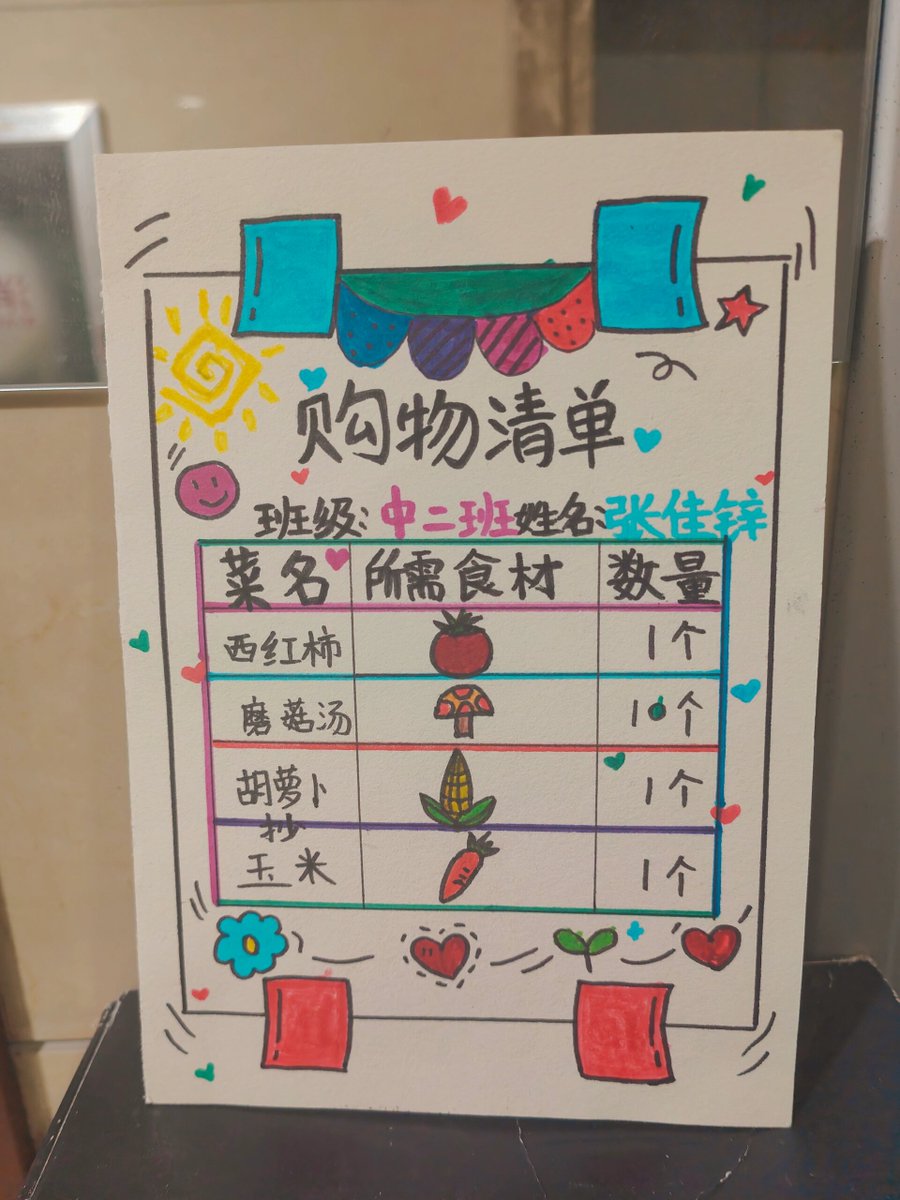 购物清单
班级:中二班姓名:张佳锌
菜名 所需食材 数量
西红柿 1个
磨菇汤 10个
胡萝卜 1个
抄
玉米 1个